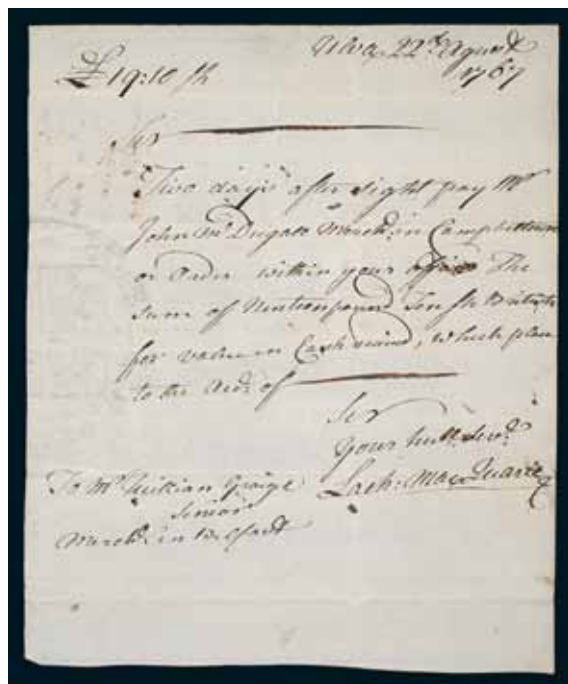 Ulva 22d Agust
£ 19:10 sh 1767
Sir
Two days after sight pay Mr
John McDugald Mercht. in Campbeltown
or Order within your office The
sum of Ninteen pound Ten sh
for value in Cash , which place
to the Acct. of
Sir
your hule. Servt.
Lach: MacQuarie
To Mr. Graige
Senior
Mercht. in Belfast